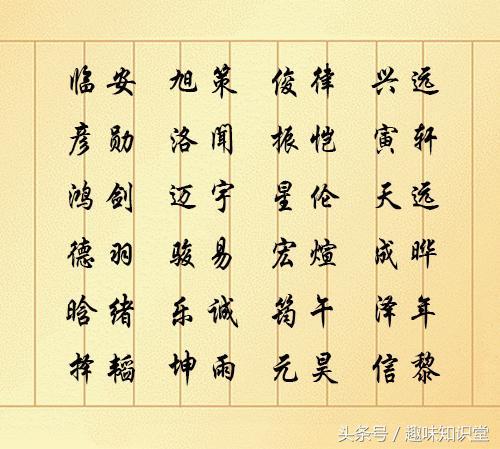 临安 旭策 俊律 兴远
彦勋 洛闻 振恺 寅轩
鸿剑 迈宇 星伦 天远
德羽 骏易 宏煊 成晔
晗绪 乐诚 筠午 泽年
择韬 坤雨 元昊 信黎
头条号/趣味知识堂